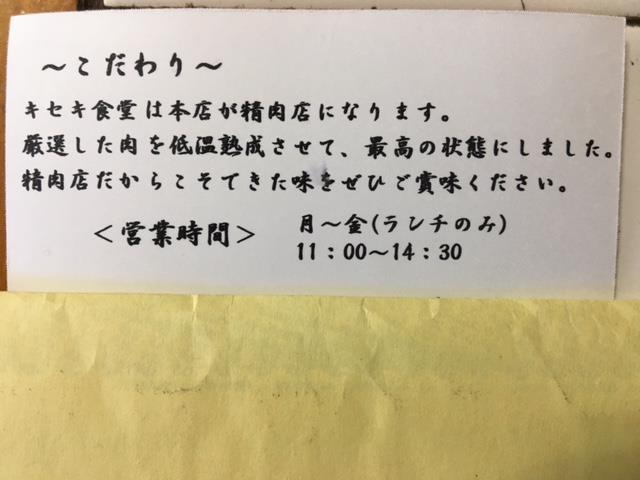 ～こだわり～
キセキ食堂は本店が精肉店になります。
厳選した肉を低温熟成させて、最高の状態にしました。
精肉店だからこそできた味をぜひご賞味ください。
＜営業時間＞ 月～金(ランチのみ)
11：00～14：30